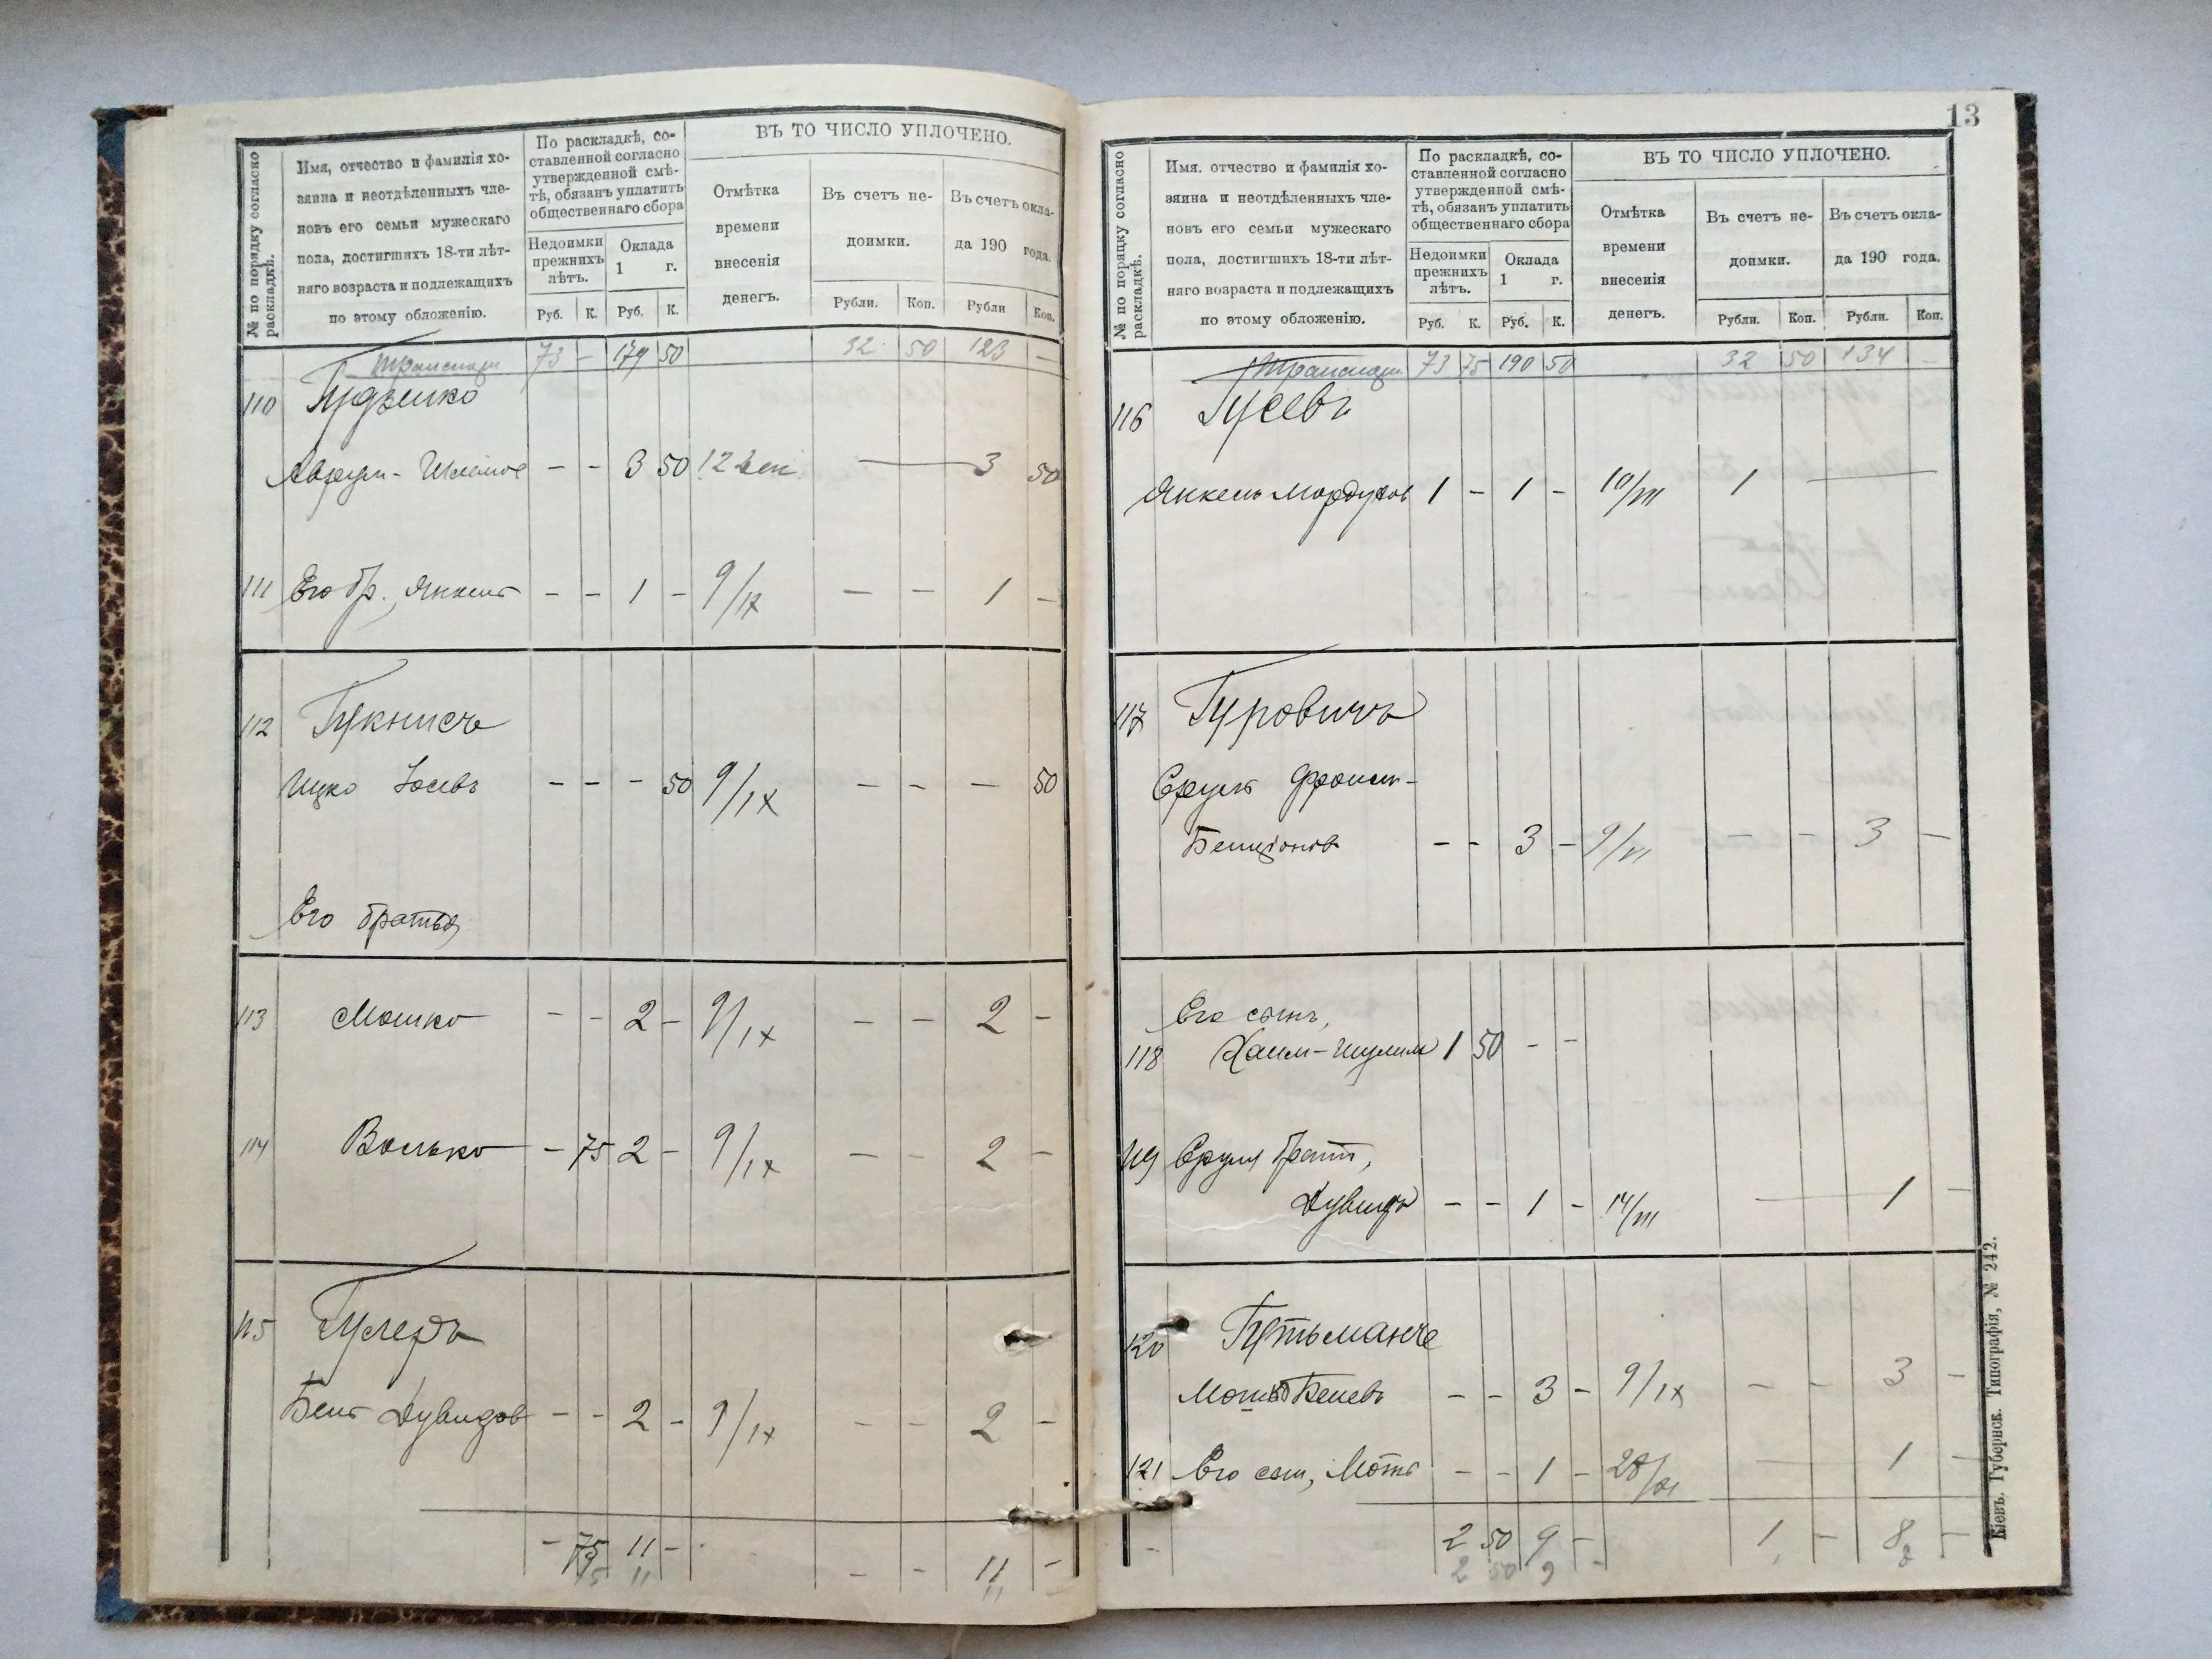 № по порядку согласно раскладкѣ.
Имя, отчество и фамилія хо-
зяина и неотдѣленныхъ чле-
новъ его семьи мужескаго
пола, достигшихъ 18-ти лѣт-
няго возраста и подлежащихъ
по этому обложенію.
По раскладкѣ, со-
ставленной согласно
утвержденной смѣ-
тѣ, обязанъ уплатить
общественнаго сбора
Недоимки
прежнихъ
лѣтъ.
Оклада
1 г.
Руб. К. Руб. К.
ВЪ ТО ЧИСЛО УПЛОЧЕНО.
Отмѣтка
времени
внесенія
денегъ.
Въ счетъ не-
доимки.
Рубли. Коп.
Въ счетъ окла-
да 190 года.
Рубли Коп.
Транспорт 73 - 179 50 32 50 123 -
110 Гудзенко
Аврум-Шлемов - - 3 50 12 - 3 50
111 Его бр., Янкель - - 1 - 9/IX - - 1 -
112 Гукнисъ
Ицко Іосевъ - - - 50 9/IX - - - 50
Его братья
113 Мошко - - 2 - 9/IX - - 2 -
114 Волько - 75 2 - 9/IX - - 2 -
115 Гулеръ
Бень Дувидов - - 2 - 9/IX - - 2 -
- 75 11 - - - 11 -
75 11 11
13
№ по порядку согласно раскладкѣ.
Имя. отчество и фамилія хо-
зяина и неотдѣленныхъ чле-
новъ его семьи мужескаго
пола, достигшихъ 18-ти лѣт-
няго возраста и подлежащихъ
по этому обложенію.
По раскладкѣ, со-
ставленной согласно
утвержденной смѣ-
тѣ, обязанъ уплатить
общественнаго сбора
Недоимки
прежнихъ
лѣтъ.
Оклада
1 г.
Руб. К. Руб. К.
ВЪ ТО ЧИСЛО УПЛОЧЕНО.
Отмѣтка
времени
внесенія
денегъ.
Въ счетъ не-
доимки.
Рубли. Коп.
Въ счетъ окла-
да 190 года.
Рубли. Коп.
Транспорт 73 75 190 50 32 50 134 -
116 Гусевъ
Янкель Мордухов 1 - 1 - 10/VIII 1 -
117 Гуровичъ
Сруль Фроим-
Бенціонов - - 3 - 9/VI - - 3 -
Его сынъ,
118 Хаим-Шулим 1 50 - -
119 Сруля братъ,
Дувидъ - - 1 - 14/VIII - 1 -
120 Гутьманче
- - 3 - 9/IX - - 3 -
121 Его сын, Мотя - - 1 - - 1 -
2 50 9 - 1 - 8 -
2 50 9 - 8
Кіевъ. Губернск. Типографія, № 242.